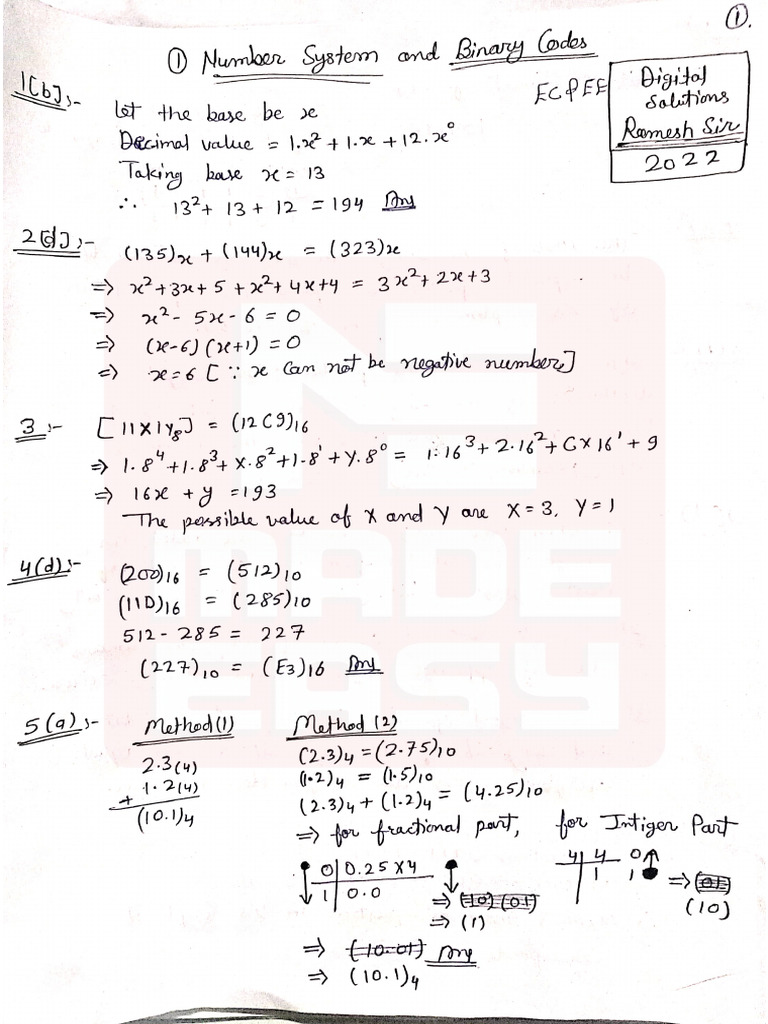 ①.
① Number System and Binary Codes
EC&EE
Digital
Solutions
Ramesh Sir
2022
1[b]:-
let the base be x
Decimal value = 1.x² + 1.x + 12.x⁰
Taking base x = 13
∴ 13² + 13 + 12 = 194 Ans
2[d]:-
(135)x + (144)x = (323)x
⇒ x² + 3x + 5 + x² + 4x + 4 = 3x² + 2x + 3
⇒ x² - 5x - 6 = 0
⇒ (x-6) (x+1) = 0
⇒ x = 6 [∵ x can not be negative number]
3:-
[11X1Y₈] = (12C9)₁₆
⇒ 1.8⁴ + 1.8³ + X.8² + 1.8¹ + Y.8⁰ = 1.16³ + 2.16² + C×16¹ + 9
⇒ 16x + y = 193
The possible value of X and Y are X = 3, Y = 1
4(d):-
(200)₁₆ = (512)₁₀
(11D)₁₆ = (285)₁₀
512 - 285 = 227
(227)₁₀ = (E3)₁₆ Ans
5(a):-
Method(1)
2.3(4)
+ 1.2(4)
(10.1)₄
Method (2)
(2.3)₄ = (2.75)₁₀
(1.2)₄ = (1.5)₁₀
(2.3)₄ + (1.2)₄ = (4.25)₁₀
⇒ for fractional part, for Intiger Part
0 | 0.25 × 4
1 | 0.0
⇒ (10) (01)
⇒ (1)
4 | 4 | 0
1 1
⇒ (01)
(10)
⇒ (10.01) Ans
⇒ (10.1)₄
MADE
EASY